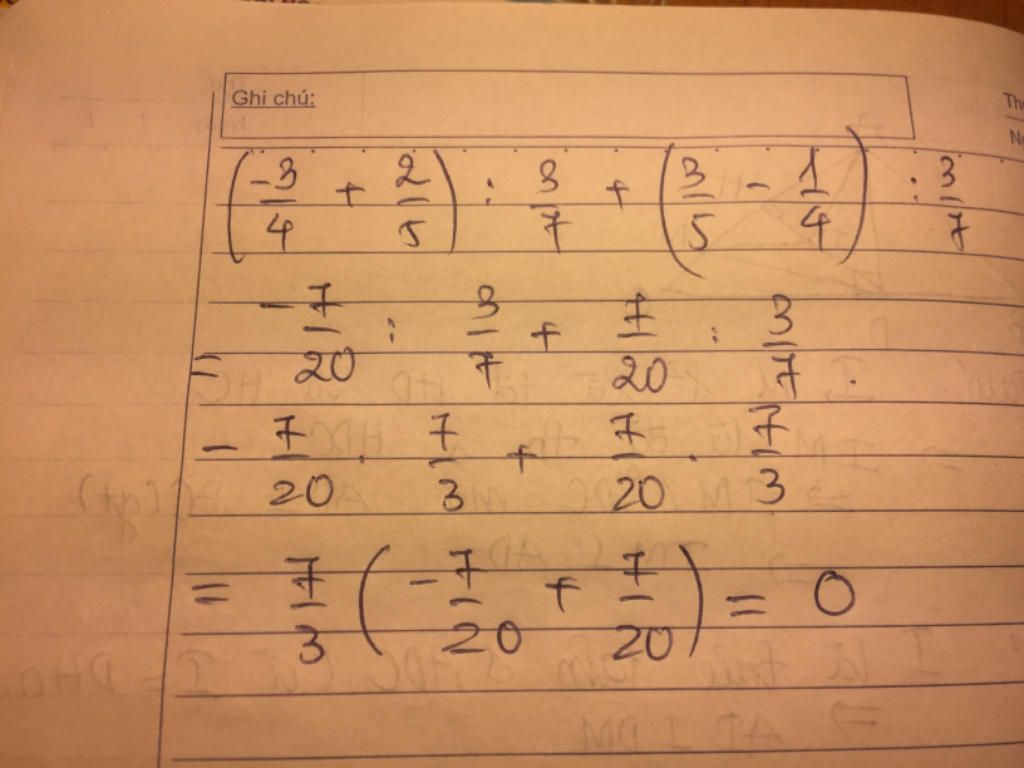 Ghi chú:
(-3/4 + 2/5) : 3/7 + (3/5 - 1/4) : 3/7
= -7/20 : 3/7 + 7/20 : 3/7 .
- 7/20 . 7/3 + 7/20 . 7/3
= 7/3 (-7/20 + 7/20) = 0